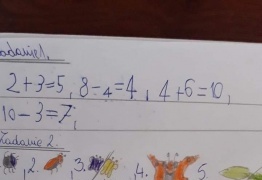 Zadanie 1.
2+3=5, 8-4=4, 4+6=10,
10-3=7,
Zadanie 2.
2. 3. 4. 5.